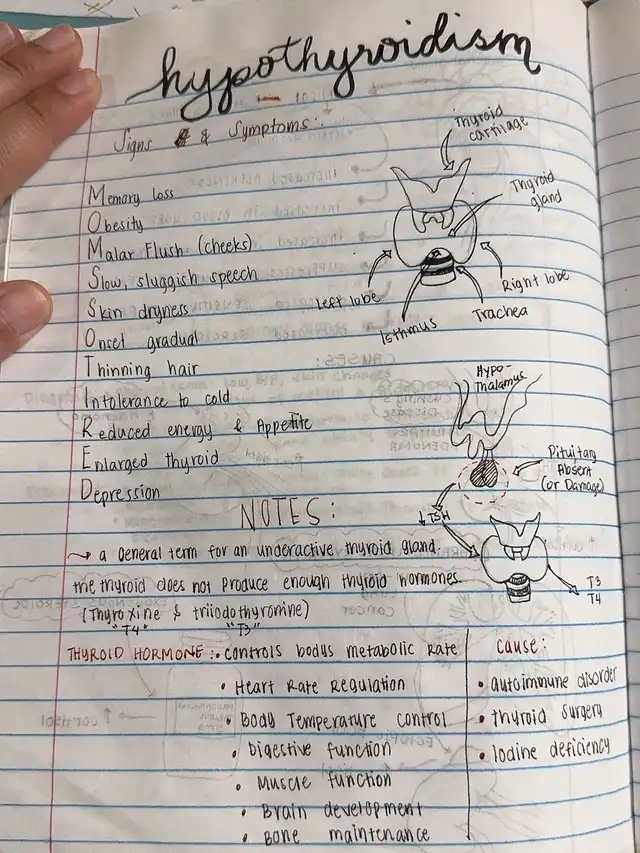 hypothyroidism
Signs & Symptoms:
Memory loss
Obesity
Malar Flush (cheeks)
Slow, sluggish speech
Skin dryness
Onset gradual
Thinning hair
Intolerance to cold
Reduced energy & Appetite
Enlarged thyroid
Depression
Thyroid
cartilage
Thyroid
gland
Left lobe
Isthmus
Trachea
Right lobe
Hypo-
Thalamus
Pituitary
Absent
(or Damage)
↓ TSH
T3
T4
NOTES:
→ a General term for an underactive thyroid gland.
the thyroid does not produce enough thyroid hormones.
(Thyroxine & triiodothyronine)
"T4" "T3"
THYROID HORMONE: • controls bodys metabolic rate
• Heart Rate Regulation
• Body Temperature control
• Digestive function
• Muscle function
• Brain development
• Bone maintenance
cause:
• autoimmune disorder
• thyroid surgery
• Iodine deficiency